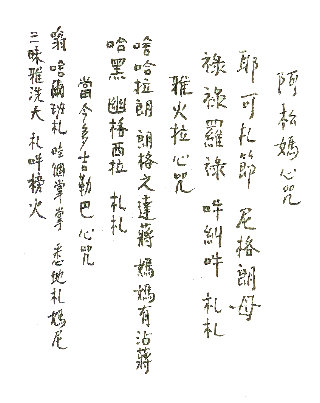 阿松媽心咒
耶可札節 尼格朗母
祿祿羅祿 吽糾吽 札札
雅火拉心咒
哈拉朗 朗格之達蔣 媽媽有沾蔣
哈黑 幽格西拉 札札
當今多吉勒巴心咒
嗡 班札 個掌掌 悉地札媽尾
三昧雅洗大 札吽榜火